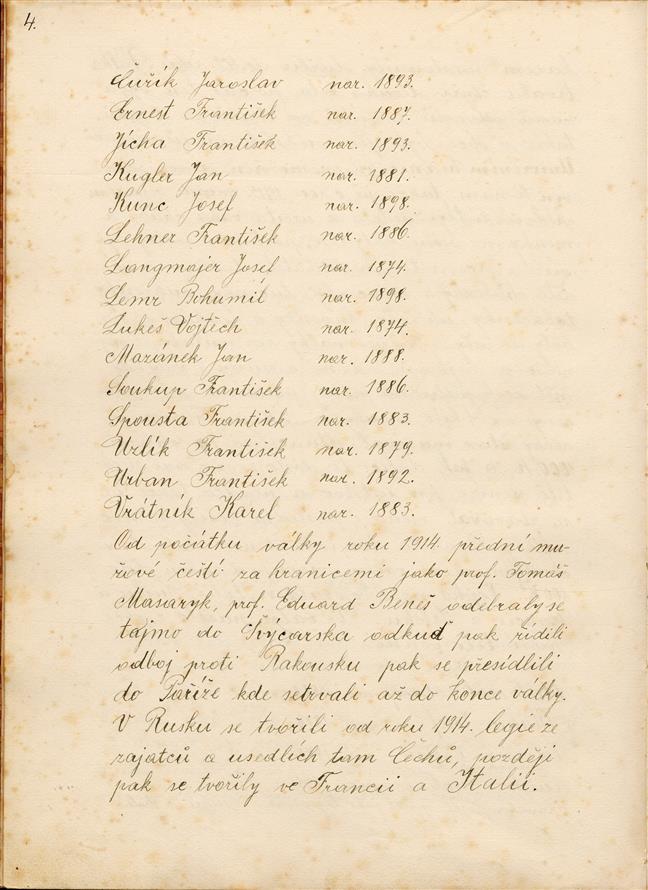 4.
Čuřík Jaroslav nar. 1893.
Ernest František nar. 1887.
Jícha František nar. 1893.
Kugler Jan nar. 1881.
Kunc Josef nar. 1898.
Lehner František nar. 1886.
Langmajer Josef nar. 1874.
Lemr Bohumil nar. 1898.
Lukeš Vojtěch nar. 1874.
Mazánek Jan nar. 1888.
Soukup František nar. 1886.
Spousta František nar. 1883.
Uzlík František nar. 1879.
Urban František nar. 1892.
Vrátník Karel nar. 1883.
Od počátku války roku 1914 přední mu-
žové čeští za hranicemi jako prof. Tomáš
Masaryk, prof. Eduard Beneš odebraly se
tajmo do Švýcarska odkuď pak řídili
odboj proti Rakousku pak se přesídlili
do Paříže kde setrvali až do konce války.
V Rusku se tvořili od roku 1914. legie ze
zajatců a usedlích tam Čechů, později
pak se tvořily ve Francii a Italii.